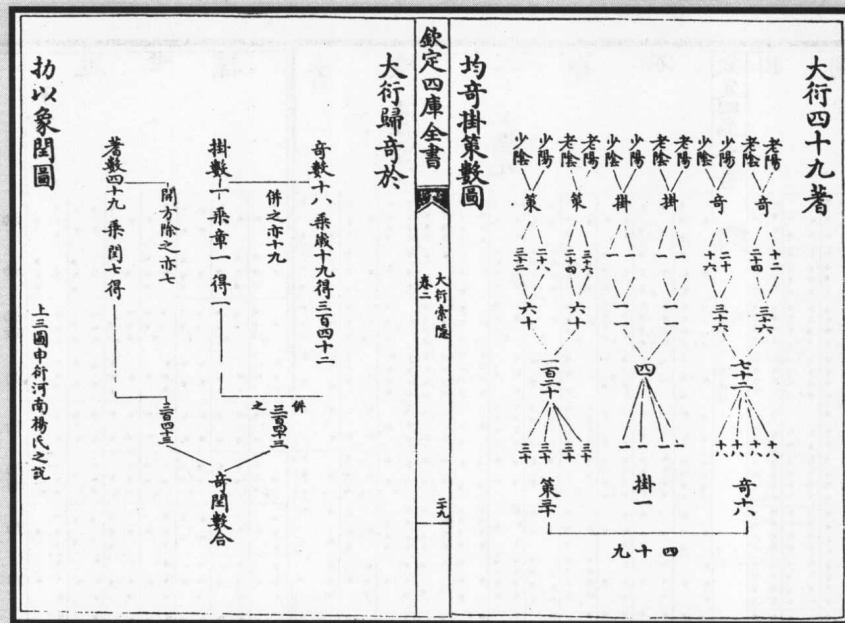 大衍四十九蓍
老陽 老陰 少陽 少陰 老陽 老陰 少陽 少陰 老陽 老陰 少陽 少陰
奇 奇 掛 掛 策 策
十二 二十四 二十 十六 一 一 一 一 三十六 二十四 二十八 三十二
三十六 三十六 二 二 六十 六十
七十二 四 一百二十
十八 十八 十八 十八 一 一 一 一 三十 三十 三十 三十
奇十八 掛一 策三十
四十九
均奇掛策數圖
欽定四庫全書
大衍索隱
卷二
二十九
大衍歸奇於
奇數十八乘歲十九得三百四十二
併之亦十九
掛數一乘章一得一
併之
三百四十三
開方除之亦七
蓍數四十九乘閏七得
三百四十三
奇閏數合
扐以象閏圖
上三圖申衍河南楊氏之說